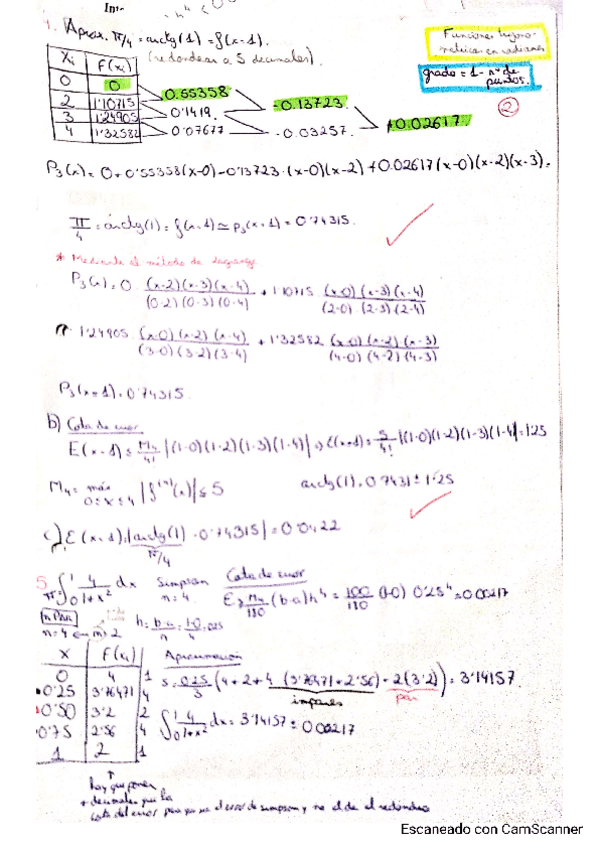 4. Aprox. π/4 = arctg(1) = f(x=1).
(redondear a 5 decimales).
Funciones trigonométricas en radianes
grado = 1 - nº de puntos.
②
Xi | F(xi)
0 | 0
2 | 1'10715
3 | 1'24905
4 | 1'32582
0.55358
0'1419
0'07677
-0.13723
-0.03257
+0.02617
P3(x) = 0 + 0'55358(x-0) - 0'13723·(x-0)(x-2) + 0.02617(x-0)(x-2)(x-3).
π/4 = arctg(1) = f(x=1) ≃ P3(x=1) = 0'74315.
* Mediante el método de Lagrange
P3(x) = 0 · (x-2)(x-3)(x-4) / (0-2)(0-3)(0-4) + 1'10715 (x-0)(x-3)(x-4) / (2-0)(2-3)(2-4)
+ 1'24905 (x-0)(x-2)(x-4) / (3-0)(3-2)(3-4) + 1'32582 (x-0)(x-2)(x-3) / (4-0)(4-2)(4-3)
P3(x=1) = 0'74315.
b) Cota de error
E(x=1) ≤ M4/4! |(1-0)(1-2)(1-3)(1-4)| → E(x=1) = 5/4! |(1-0)(1-2)(1-3)(1-4)| = 1'25
M4 = máx 0≤x≤4 |f^(IV)(x)| ≤ 5
arctg(1) = 0,7431 ± 1'25
c) E(x=1) = |arctg(1) - 0'74315| = 0'0422
π/4
5. π = ∫₀¹ 4/1+x² dx Simpson n=4. Cota de error
E ≥ M4/180 (b-a)h⁴ = 100/180 (1-0) 0'25⁴ = 0'00217
n PAR
n=4 m=2
h = b-a/n = 1-0/4 = 0,25
X | F(xi)
0 | 4 | 1
0'25 | 3'76471 | 4
0'50 | 3'2 | 2
0'75 | 2'56 | 4
1 | 2 | 1
Aproximación
S = 0.25/3 (4+2+4·(3'76471+2'56)+2(3'2)) = 3'14157.
impares
par
∫₀¹ 4/1+x² dx = 3'14157 ± 0'00217
hay que poner
+ decimales que la
cota del error para que sea el error de simpson y no el de el redondeo
Escaneado con CamScanner